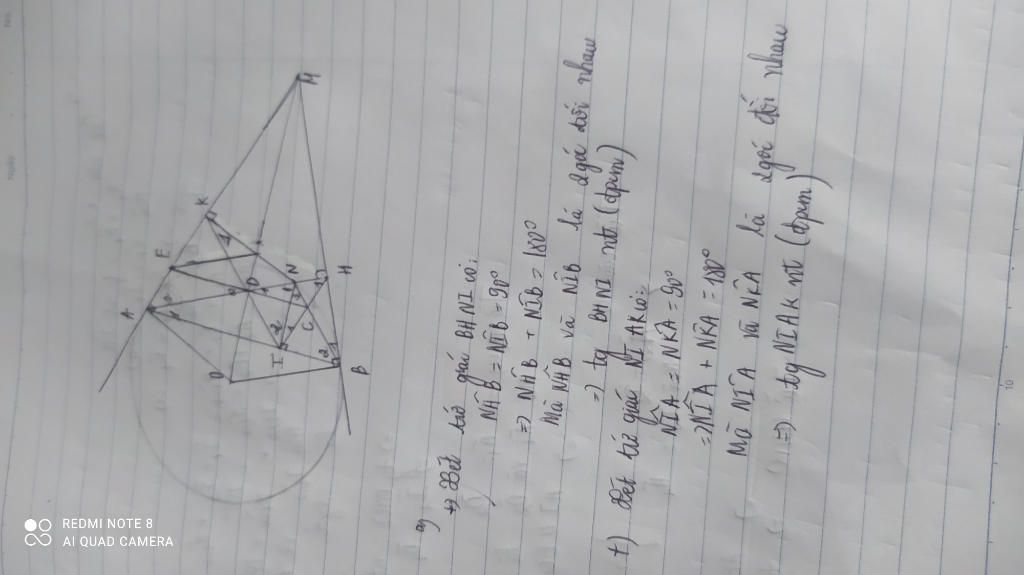 A
E
K
M
O
D
I
N
C
H
B
a)
+) Xét tứ giác BHNI có:
NĤB = NÎB = 90°
=> NĤB + NÎB = 180°
Mà NĤB và NÎB là 2 góc đối nhau
=> tg BHNI nt (đpcm)
+) Xét tứ giác NIAK có:
NÎA = NK̂A = 90°
=> NÎA + NK̂A = 180°
Mà NÎA và NK̂A là 2 góc đối nhau
=> tg NIAK nt (đpcm)
REDMI NOTE 8
AI QUAD CAMERA
10